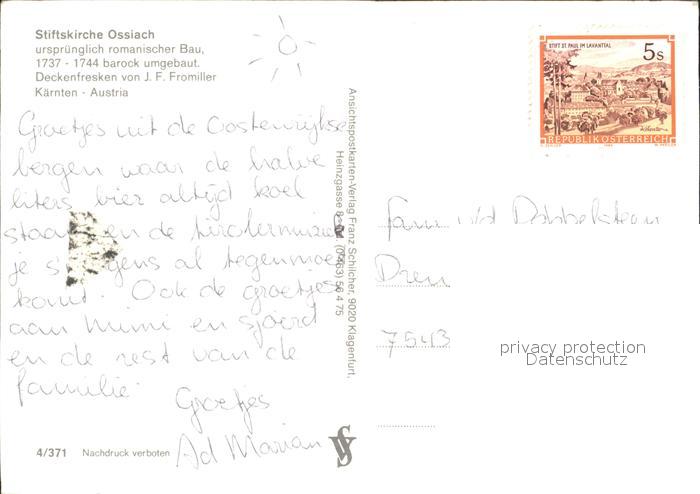 Stiftskirche Ossiach
ursprünglich romanischer Bau,
1737 - 1744 barock umgebaut.
Deckenfresken von J. F. Fromiller
Kärnten - Austria
Groetjes uit de Oostenrijkse
bergen waar de halve
liters bier altijd koel
staan en de tirolermuziek
je s gens al tegemoet
komt. Ook de groetjes
aan Mimi en Sjoerd
en de rest van de
familie.
Groetjes
Ad Marian
4/371 Nachdruck verboten
Ansichtspostkarten-Verlag Franz Schilcher, 9020 Klagenfurt,
Heinzgasse 8, (0463) 56 4 75
STIFT ST. PAUL IM LAVANTTAL
5s
REPUBLIK ÖSTERREICH
Fam v/d Dobbelsteen
7543
privacy protection
Datenschutz